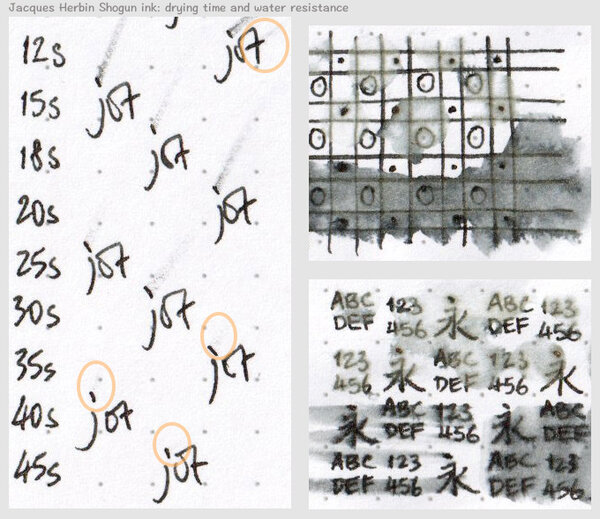 Jacques Herbin Shogun ink: drying time and water resistance
12s jot
15s jot
18s jot
20s jot
25s jot
30s jot
35s jot
40s jot
45s jot
ABC 123 永 ABC 123
DEF 456 DEF 456
123 永 ABC 123 永
456 DEF 456
永 ABC 123 永 ABC
DEF 456 DEF
ABC 123 永 ABC 123
DEF 456 DEF 456